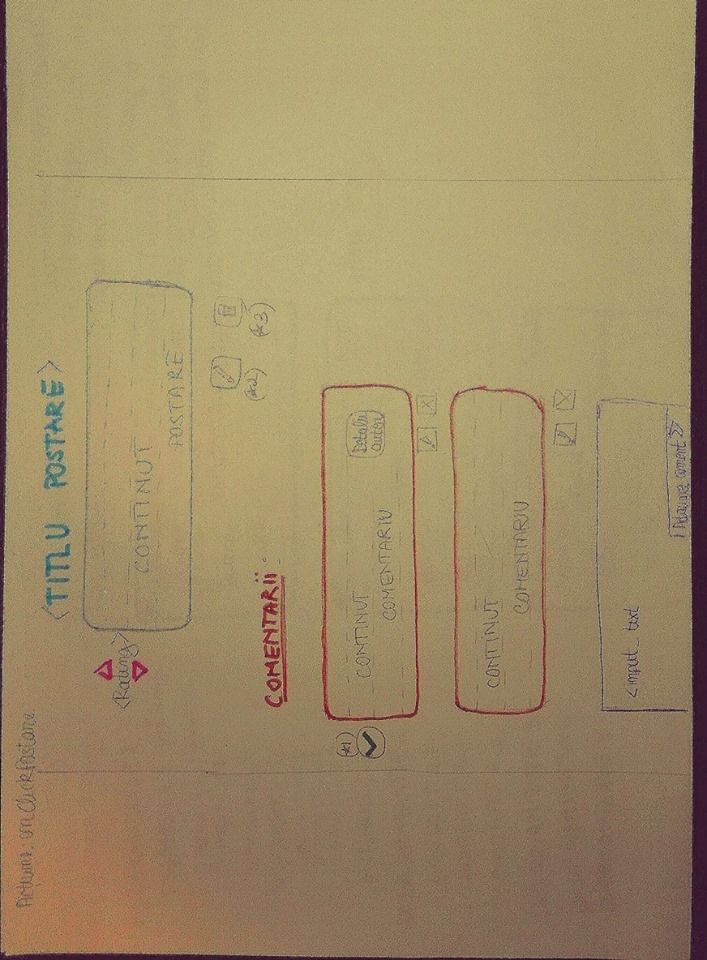 Acțiune: onClickPostare
<TITLU POSTARE>
<Rating>
CONTINUT
POSTARE
(*2) (*3)
COMENTARII:
(*1)
CONTINUT
COMENTARIU
Detalii
autor
CONTINUT
COMENTARIU
<input_text
Adauga coment >>